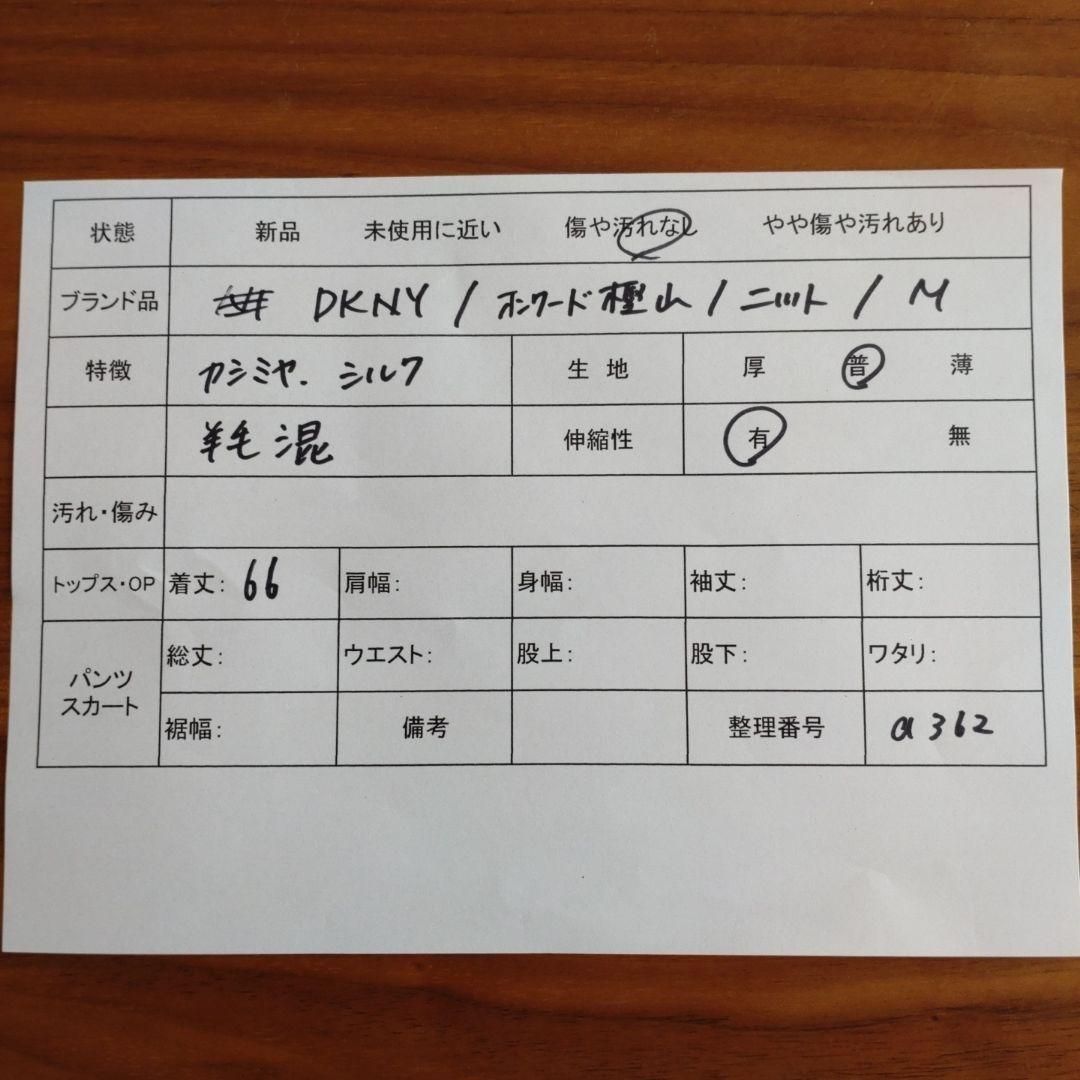 状態 新品 未使用に近い 傷や汚れなし やや傷や汚れあり
ブランド品 DKNY / オンワード樫山 / ニット / M
特徴 カシミヤ. シルク 生地 厚 普 薄
羊毛混 伸縮性 有 無
汚れ・傷み
トップス・OP 着丈: 66 肩幅: 身幅: 袖丈: 桁丈:
パンツ スカート
総丈: ウエスト: 股上: 股下: ワタリ:
裾幅: 備考 整理番号 a362